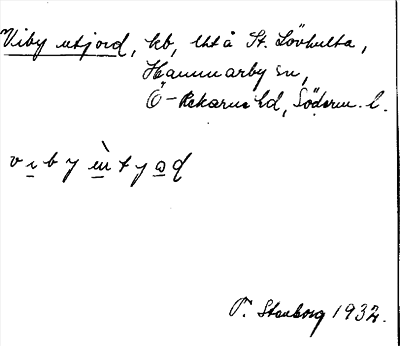 Viby utjord, kb, lht å St. Lövhulta,
Hammarby sn,
Ö-Rekarne hd, Söderm. l.
v i b y ù t y o d
T. Stenborg 1932.